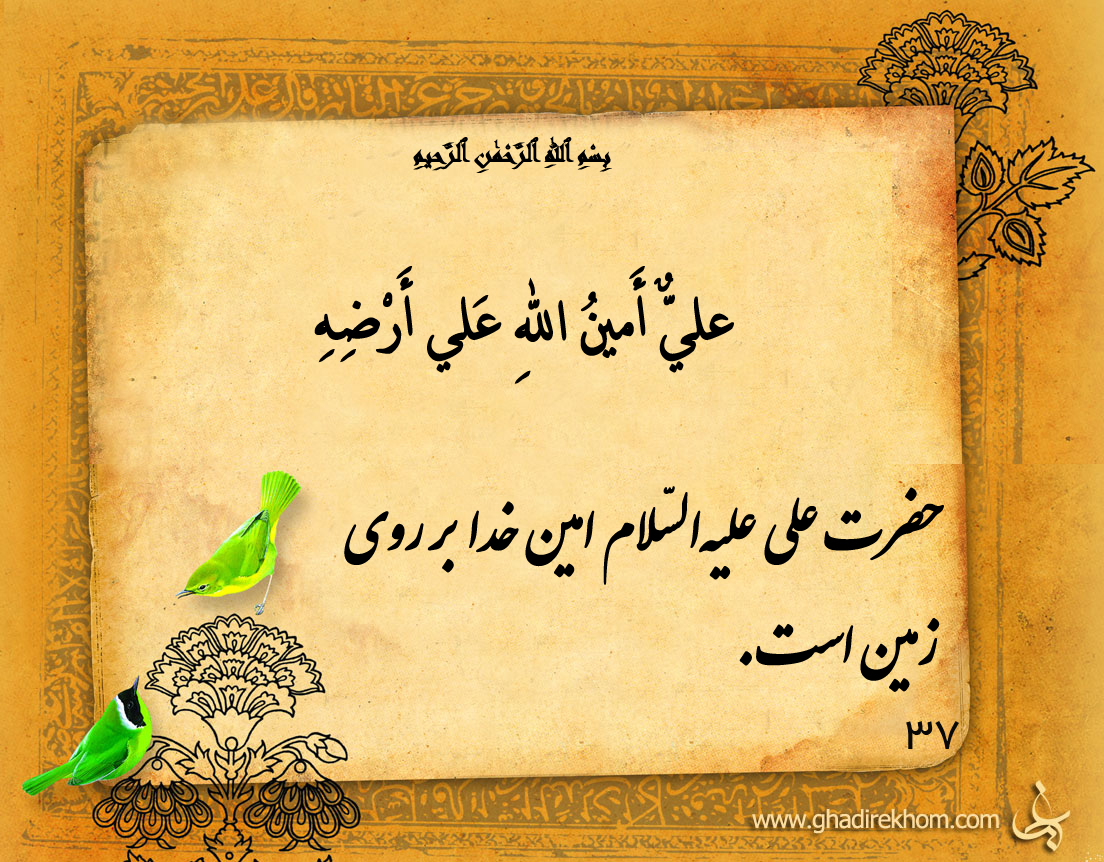 بِسْمِ ٱللَّهِ ٱلرَّحْمَٰنِ ٱلرَّحِيمِ
عليٌّ أَمينُ اللهِ عَلي أَرْضِهِ
حضرت علی علیه‌السّلام امین خدا بر روی
زمین است.
۳۷
www.ghadirekhom.com